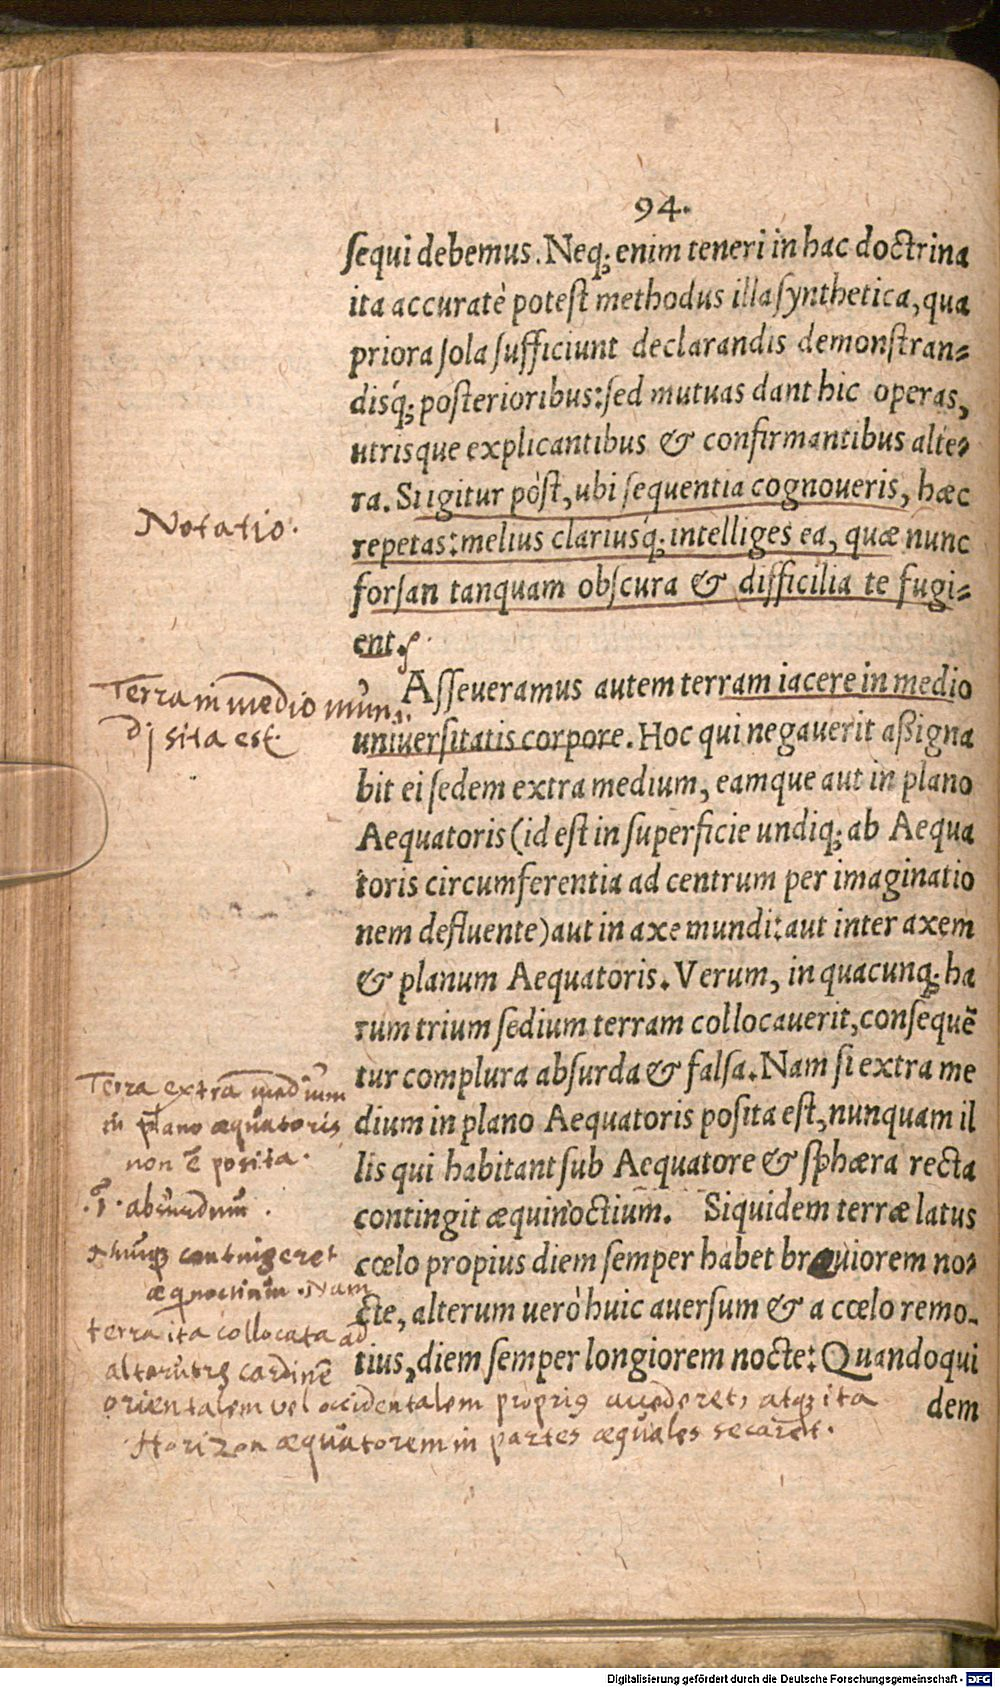 94.
sequi debemus. Neq; enim teneri in hac doctrina
ita accuratè potest methodus illa synthetica, qua
priora sola sufficiunt declarandis demonstran=
disq́; posterioribus: sed mutuas dant hic operas,
utrisque explicantibus & confirmantibus alte=
ra. Si igitur pòst, ubi sequentia cognoveris, hæc
repetas: melius clariusq́; intelliges ea, quæ nunc
forsan tanquam obscura & difficilia te fugi=
ent.
Notatio.
Asseueramus autem terram iacere in medio
universitatis corpore. Hoc qui negauerit assigna
bit ei sedem extra medium, eamque aut in plano
Aequatoris (id est in superficie undiq; ab Aequa
toris circumferentia ad centrum per imaginatio
nem defluente) aut in axe mundi: aut inter axem
& planum Aequatoris. Verum, in quacunq; ha
rum trium sedium terram collocauerit, consequē
tur complura absurda & falsa. Nam si extra me
dium in plano Aequatoris posita est, nunquam il
lis qui habitant sub Aequatore & sphæra recta
contingit æquinoctium. Siquidem terræ latus
cœlo propius diem semper habet breuiorem no=
cte, alterum uerò huic auersum & a cœlo remo-
tius, diem semper longiorem nocte: Quandoqui
dem
Terra in medio mun
di sita est.
Terra extra medium
in plano æquatoris
non ē posita.
absurdum.
contingeret
æquinoctium. Nam
terra ita collocata ad
cardinē
orientalem vel occidentalem propius accederet, atq; ita
Horizon æquatorem in partes æquales secaret.
Digitalisierung gefördert durch die Deutsche Forschungsgemeinschaft - DFG